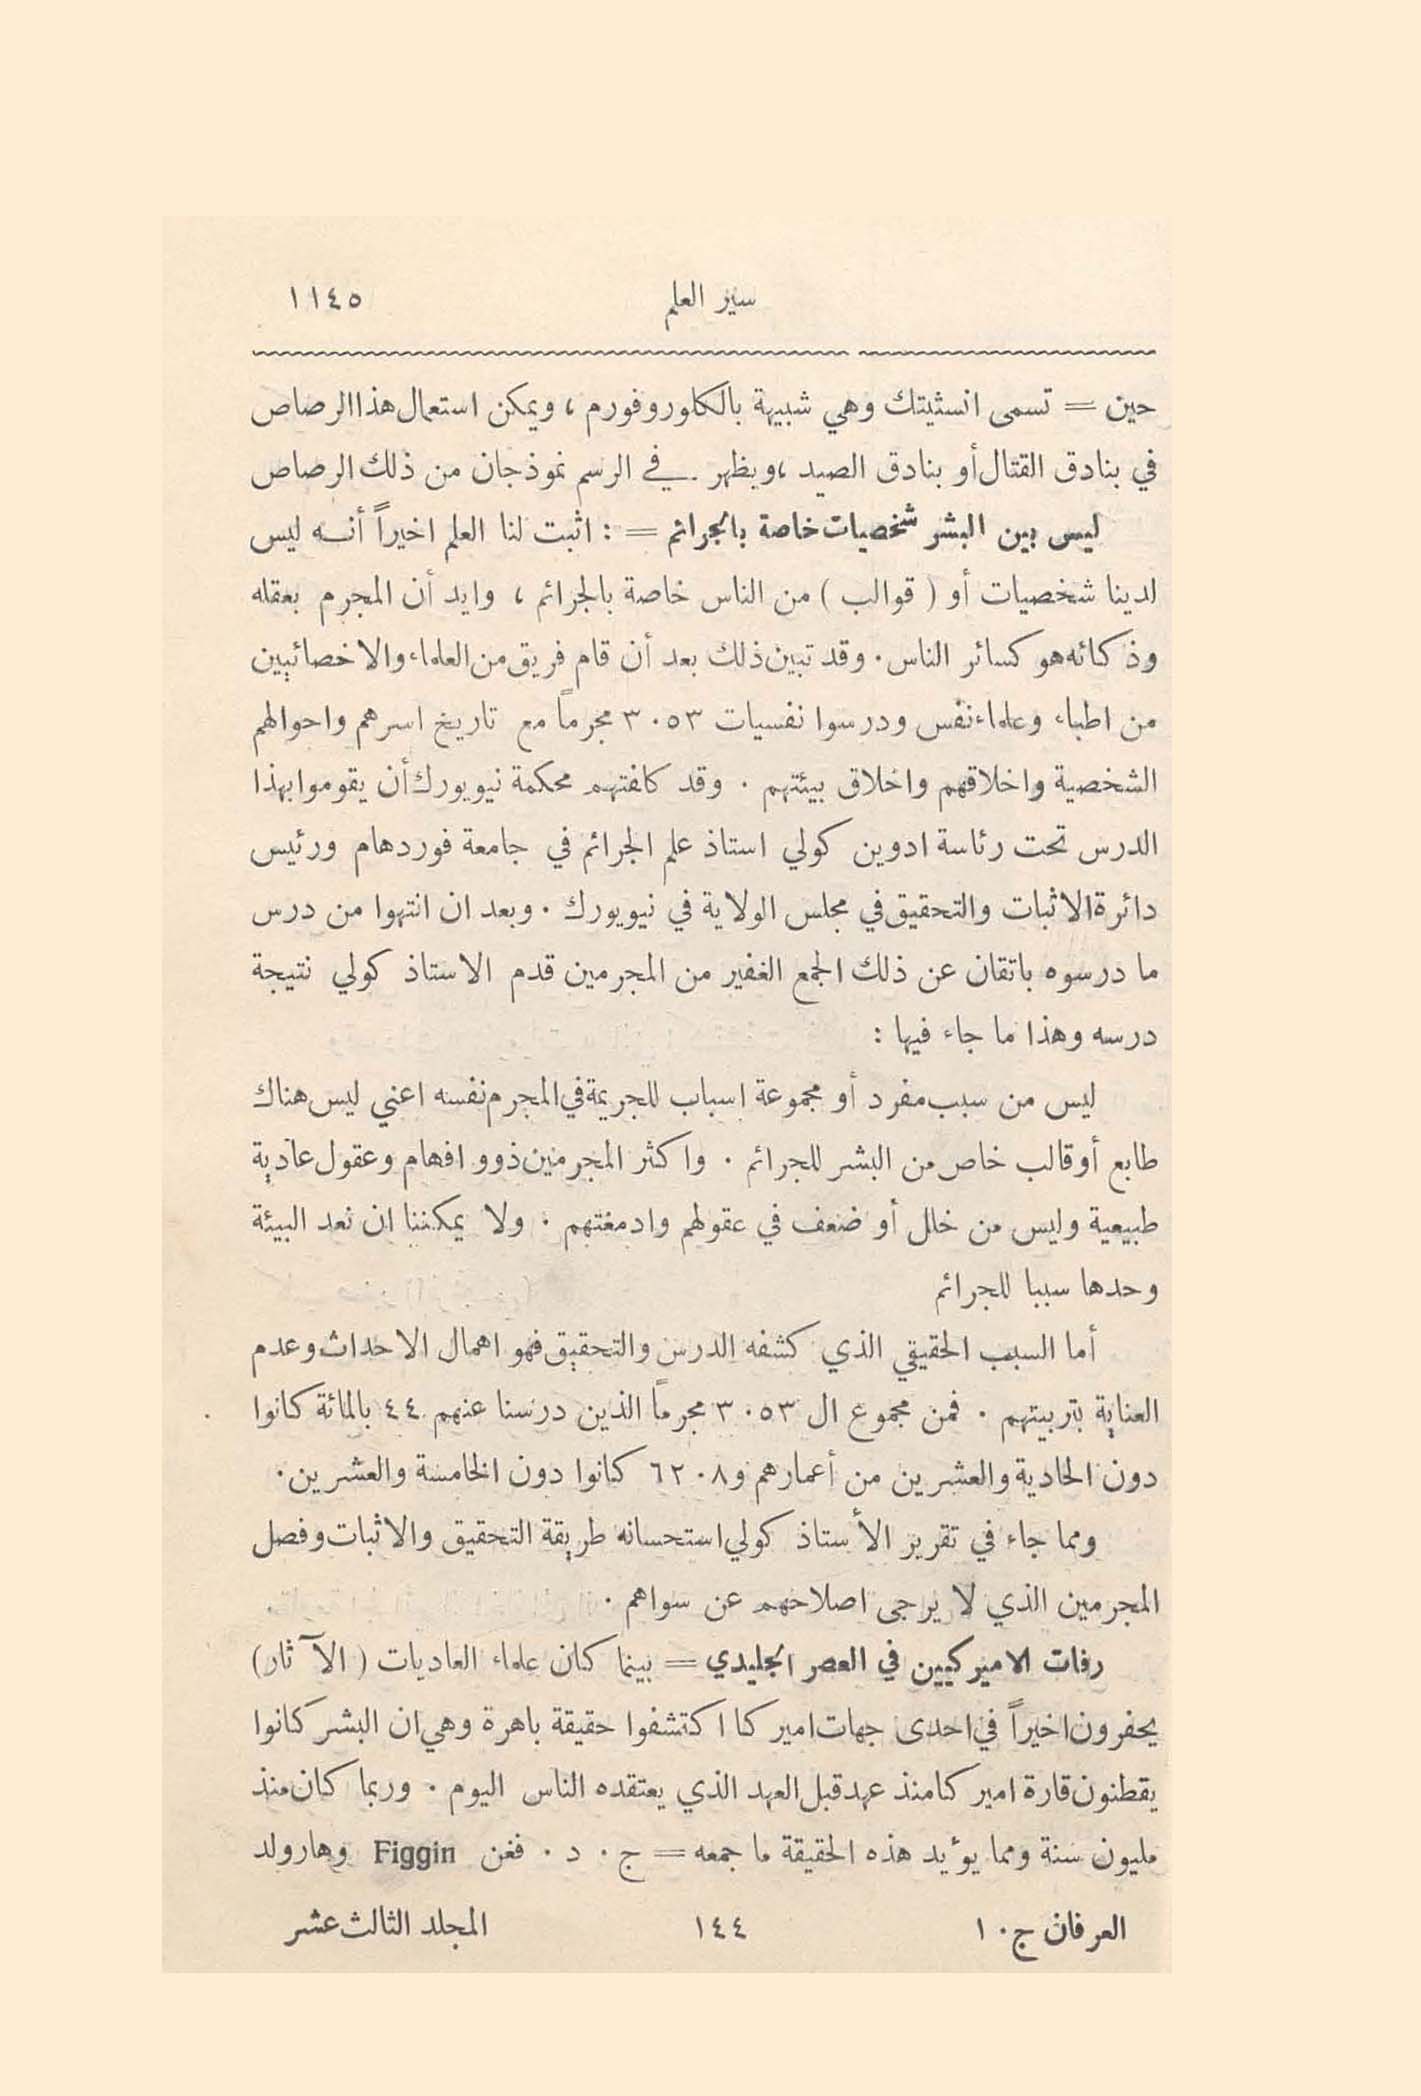 سير العلم ١١٤٥
حين = تسمى انسثيتك وهي شبيهة بالكلوروفورم ، ويمكن استعمال هذا الرصاص
في بنادق القتال أو بنادق الصيد ، ويظهر في الرسم نموذجان من ذلك الرصاص
ليس بين البشر شخصيات خاصة بالجرائم = : اثبت لنا العلم اخيراً أنه ليس
لدينا شخصيات أو ( قوالب ) من الناس خاصة بالجرائم ، وايد أن المجرم بعقله
وذكائه هو كسائر الناس . وقد تبين ذلك بعد أن قام فريق من العلماء والاخصائيين
من اطباء وعلماء نفس ودرسوا نفسيات ٣٠٥٣ مجرماً مع تاريخ اسرهم واحوالهم
الشخصية واخلاقهم واخلاق بيئتهم . وقد كلفتهم محكمة نيويورك أن يقوموا بهذا
الدرس تحت رئاسة ادوين كولي استاذ علم الجرائم في جامعة فوردهام ورئيس
دائرة الاثبات والتحقيق في مجلس الولاية في نيويورك . وبعد ان انتهوا من درس
ما درسوه باتقان عن ذلك الجمع الغفير من المجرمين قدم الاستاذ كولي نتيجة
درسه وهذا ما جاء فيها :
ليس من سبب مفرد أو مجموعة اسباب للجريمة في المجرم نفسه اعني ليس هناك
طابع أو قالب خاص من البشر للجرائم . واكثر المجرمين ذوو افهام وعقول عادية
طبيعية وليس من خلل أو ضعف في عقولهم وادمغتهم . ولا يمكننا ان نعد البيئة
وحدها سببا للجرائم
أما السبب الحقيقي الذي كشفه الدرس والتحقيق فهو اهمال الاحداث وعدم
العناية بتربيتهم . فمن مجموع ال ٣٠٥٣ مجرماً الذين درسنا عنهم ٤٤ بالمائة كانوا
دون الحادية والعشرين من أعمارهم و٦٢٠٨ كانوا دون الخامسة والعشرين .
ومما جاء في تقرير الأستاذ كولي استحسانه طريقة التحقيق والاثبات وفصل
المجرمين الذي لا يرجى اصلاحهم عن سواهم .
رفات الاميركيين في العصر الجليدي = بينما كان علماء العاديات ( الآثار )
يحفرون اخيراً في احدى جهات اميركا اكتشفوا حقيقة باهرة وهي ان البشر كانوا
يقطنون قارة اميركا منذ عهد قبل العهد الذي يعتقده الناس اليوم . وربما كان منذ
مليون سنة ومما يؤيد هذه الحقيقة ما جمعه = ج . د . فغن Figgin وهارولد
العرفان ج ١٠ ١٤٤ المجلد الثالث عشر